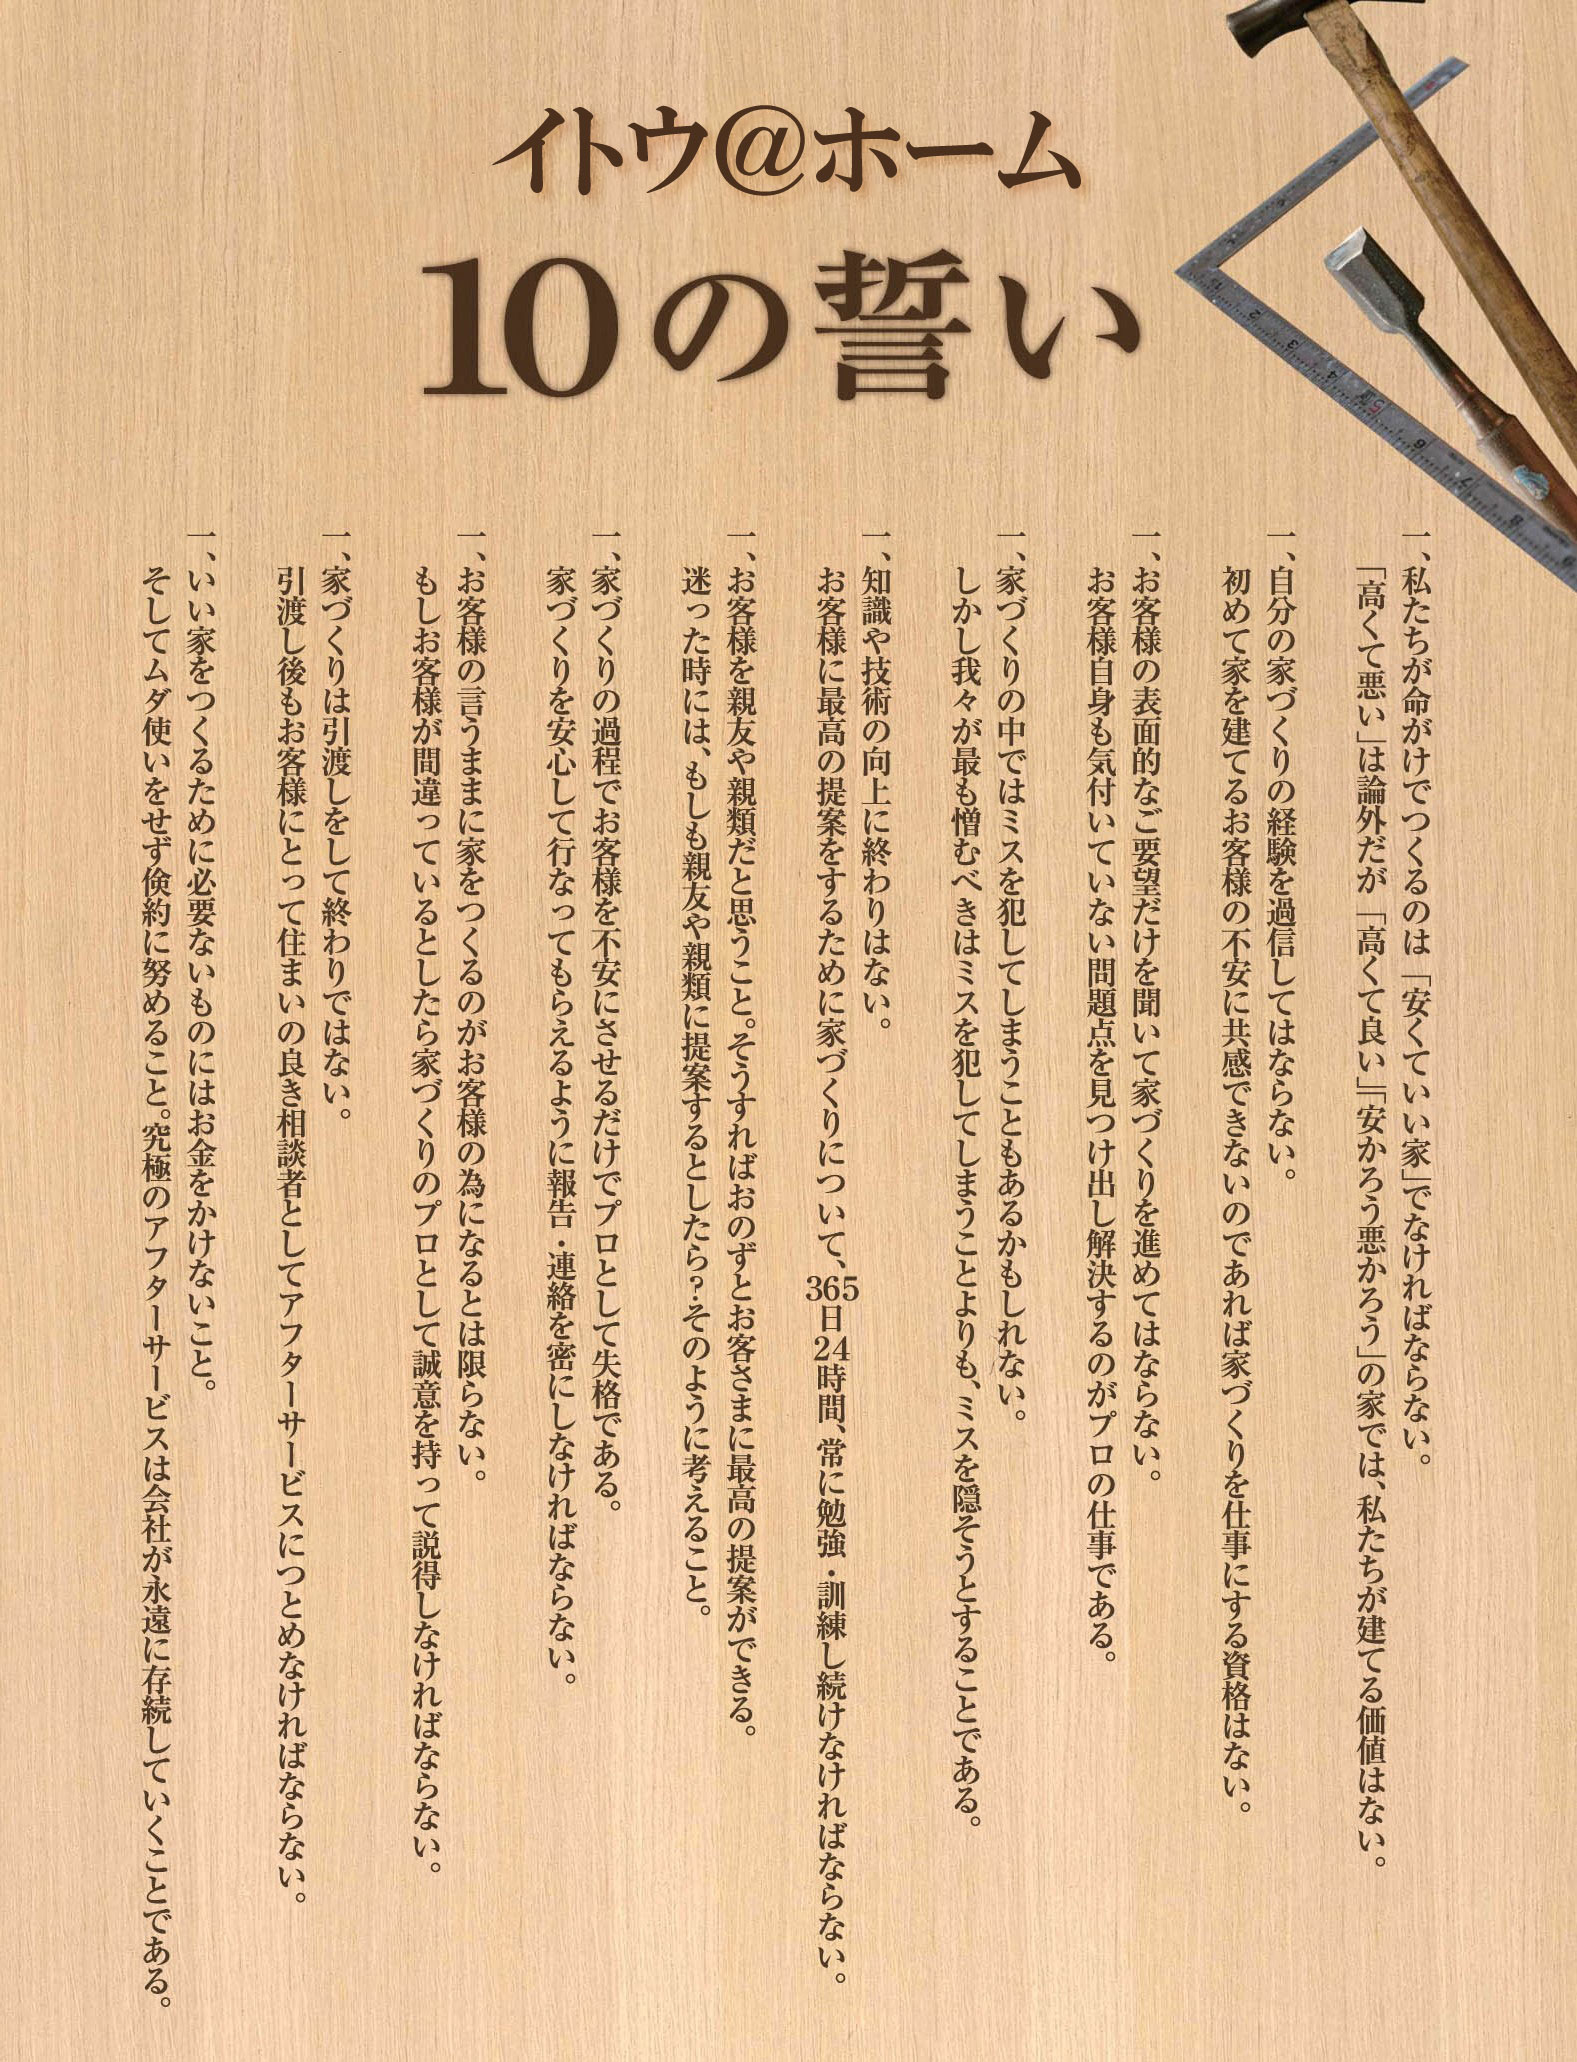 イトウ@ホーム
10の誓い
一、私たちが命がけでつくるのは「安くていい家」でなければならない。
「高くて悪い」は論外だが「高くて良い」『「安かろう悪かろう」の家では、私たちが建てる価値はない。
一、自分の家づくりの経験を過信してはならない。
初めて家を建てるお客様の不安に共感できないのであれば家づくりを仕事にする資格はない。
一、お客様の表面的なご要望だけを聞いて家づくりを進めてはならない。
お客様自身も気付いていない問題点を見つけ出し解決するのがプロの仕事である。
一、家づくりの中ではミスを犯してしまうこともあるかもしれない。
しかし我々が最も憎むべきはミスを犯してしまうことよりも、ミスを隠そうとすることである。
一、知識や技術の向上に終わりはない。
お客様に最高の提案をするために家づくりについて、365日24時間、常に勉強・訓練し続けなければならない。
一、お客様を親友や親類だと思うこと。そうすればおのずとお客さまに最高の提案ができる。
迷った時には、もしも親友や親類に提案するとしたら?そのように考えること。
一、家づくりの過程でお客様を不安にさせるだけでプロとして失格である。
家づくりを安心して行なってもらえるように報告・連絡を密にしなければならない。
一、お客様の言うままに家をつくるのがお客様の為になるとは限らない。
もしお客様が間違っているとしたら家づくりのプロとして誠意を持って説得しなければならない。
一、家づくりは引渡しをして終わりではない。
引渡し後もお客様にとって住まいの良き相談者としてアフターサービスにつとめなければならない。
一、いい家をつくるために必要ないものにはお金をかけないこと。
そしてムダ使いをせず倹約に努めること。究極のアフターサービスは会社が永遠に存続していくことである。